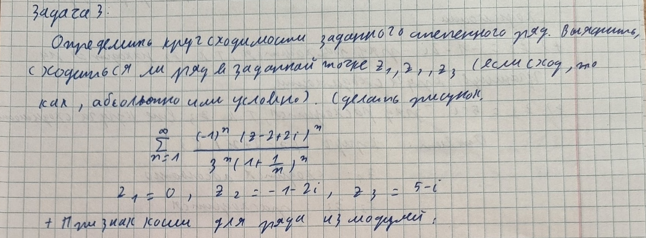 Задача 3.
Определить круг сходимости заданного степенного ряд. Выяснить,
сходиться ли ряд в заданной точке z₁, z₂, z₃ (если сход, то
как, абсолютно или условно). Сделать рисунок.
∑_{n=1}^{∞} ((-1)ⁿ (z-2+2i)ⁿ) / (3ⁿ(1+1/n)ⁿ)
z₁=0, z₂=-1-2i, z₃=5-i
+ Признак коши для ряда из модулей.